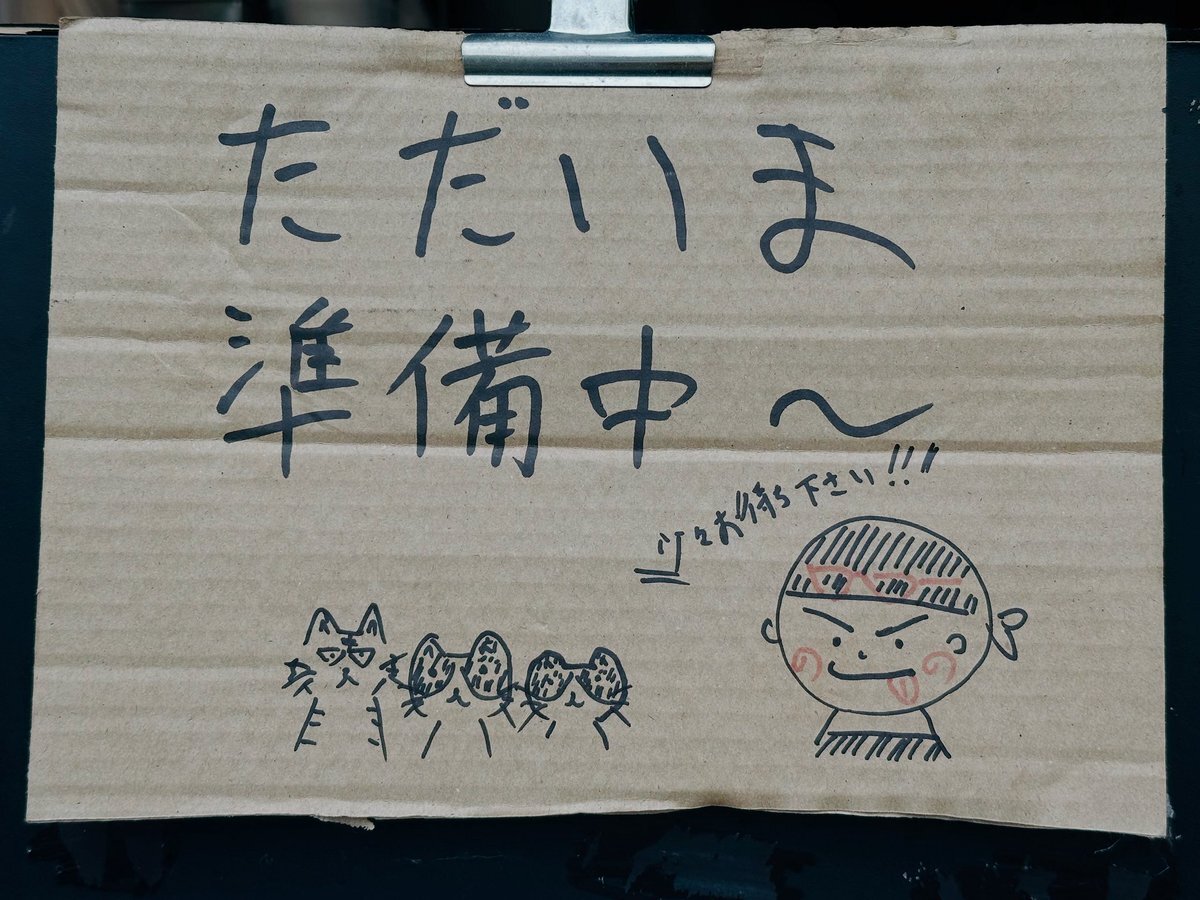 ただいま
準備中〜
少々お待ち下さい!!!